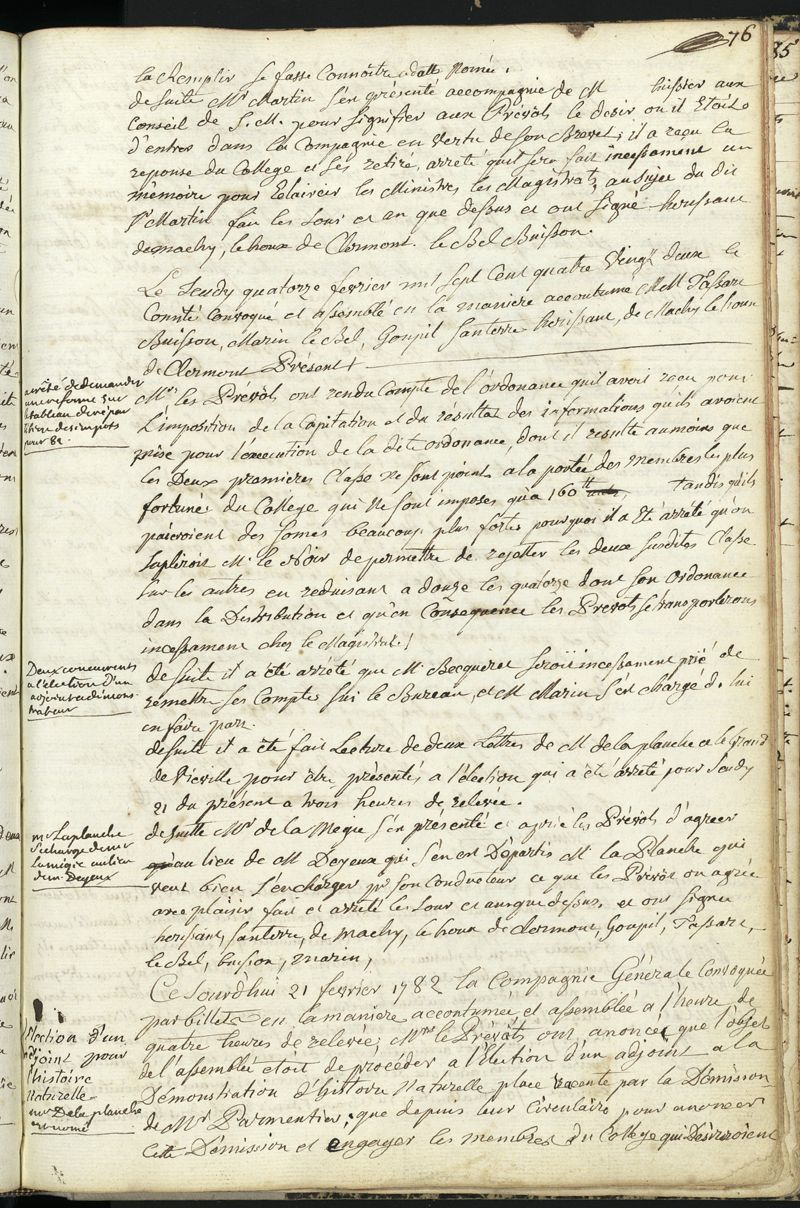 76
la Remplir se fasse Connoitre adatte nomée.
de suite Mr Martin s'en présenté accompagnie de M huissier aux
Conseil de S. M. pour signifier aux Prévots le desir ou il Etoit
d'entrer dans la Compagnie en vertu de son Brevet, il a reçu la
reponse du College et s'est retiré, arreté quil sera fait incessament un
mémoire pour Eclaircir les Ministres les Magistrats, au sujet du dit
Sr Martin fait les Jour et an que dessus et ont signé herissant
demachy, le houx de Clermont. le Bel Buisson.
Le Jeudy quatorze fevrier mil sept Cent quatre Vingt deux le
Comité Convoqué et assemblé en la maniere accoutumé MM Tassart
Buisson, Marin le Bel, Goupil Santerre herissant, de Machy le houx
de Clermont Présent
arrêté de demander
une reforme sur
le tableau de répar
tition des impots
pour 82.
Mrs les Prévots ont rendu Compte de l'ordonance quil avoit reçu pour
L'imposition de la Capitation et du resultat des informations quils avoient
prise pour l'execution de la dite ordonance, dont il resulte aumoins que
les Deux premieres Classe ne sont point a la portée des membres les plus
fortunés du College qui ne sont imposés qu'a 160 tt tandis quils
paieroient des somes beaucoup plus fortes pourquoi il a Eté arrêté qu'on
suplirois M. le Noir de permettre de rejetter les deux susdites Classe
sur les autres en reduisant a douze les quatorze dont son Ordonance
dans la Distribution et qu'en Consequence les Prevots se transporterons
incessament chez le Magistrat.
Deux concurrents
a l'élection d'un
adjoint a démons
trateur
de suite il a été arrêté que M. Becqueret seroit incessament prié de
remettre ses Comptes sur le Bureau, et M Marin s'est chargé de lui
en faire part.
de suite il a été fait Lecture de deux Lettres de M de la planche et le Grand
de Vieville pour être présentés a l'élection qui a été arrêté pour Jeudy
21 du présent a trois heures de relevée.
mr Laplanche
se charge de mr
Lamégie au lieu
de mr Deyeux
de suitte Mr de la Megie s'en présenté et a prié les Prévots d'agreer
au lieu de M Deyeux qui s'en est Départis M. la Planche qui
veut bien s'en charger pr son Conducteur ce que les Prevots on agrée
avec plaisir fait et arrêté les Jour et an que dessus, et ont signée
herissant, Santerre, de Machy, le houx de Clermont, Goupil, Tassart,
le Bel, buisson, Marin,
Election d'un
adjoint pour
l'histoire
Naturelle
mr Delaplanche
est nomé
Ce Jourdhui 21 fevrier 1782 la Compagnie Générale Convoquée
par billets en la maniere accoutumée et assemblée a l'heure de
quatre heures de relevée, Mrs les Prévots ont anoncés que l'objet
de l'assemblée etoit de procéder a l'Election d'un adjoint a la
Démonstration d'histoire Naturelle place vacante par la Démission
de Mr Parmentier, que depuis leur Circulaire pour annoncer
cette Démission et engager les membres du College qui Desireroient